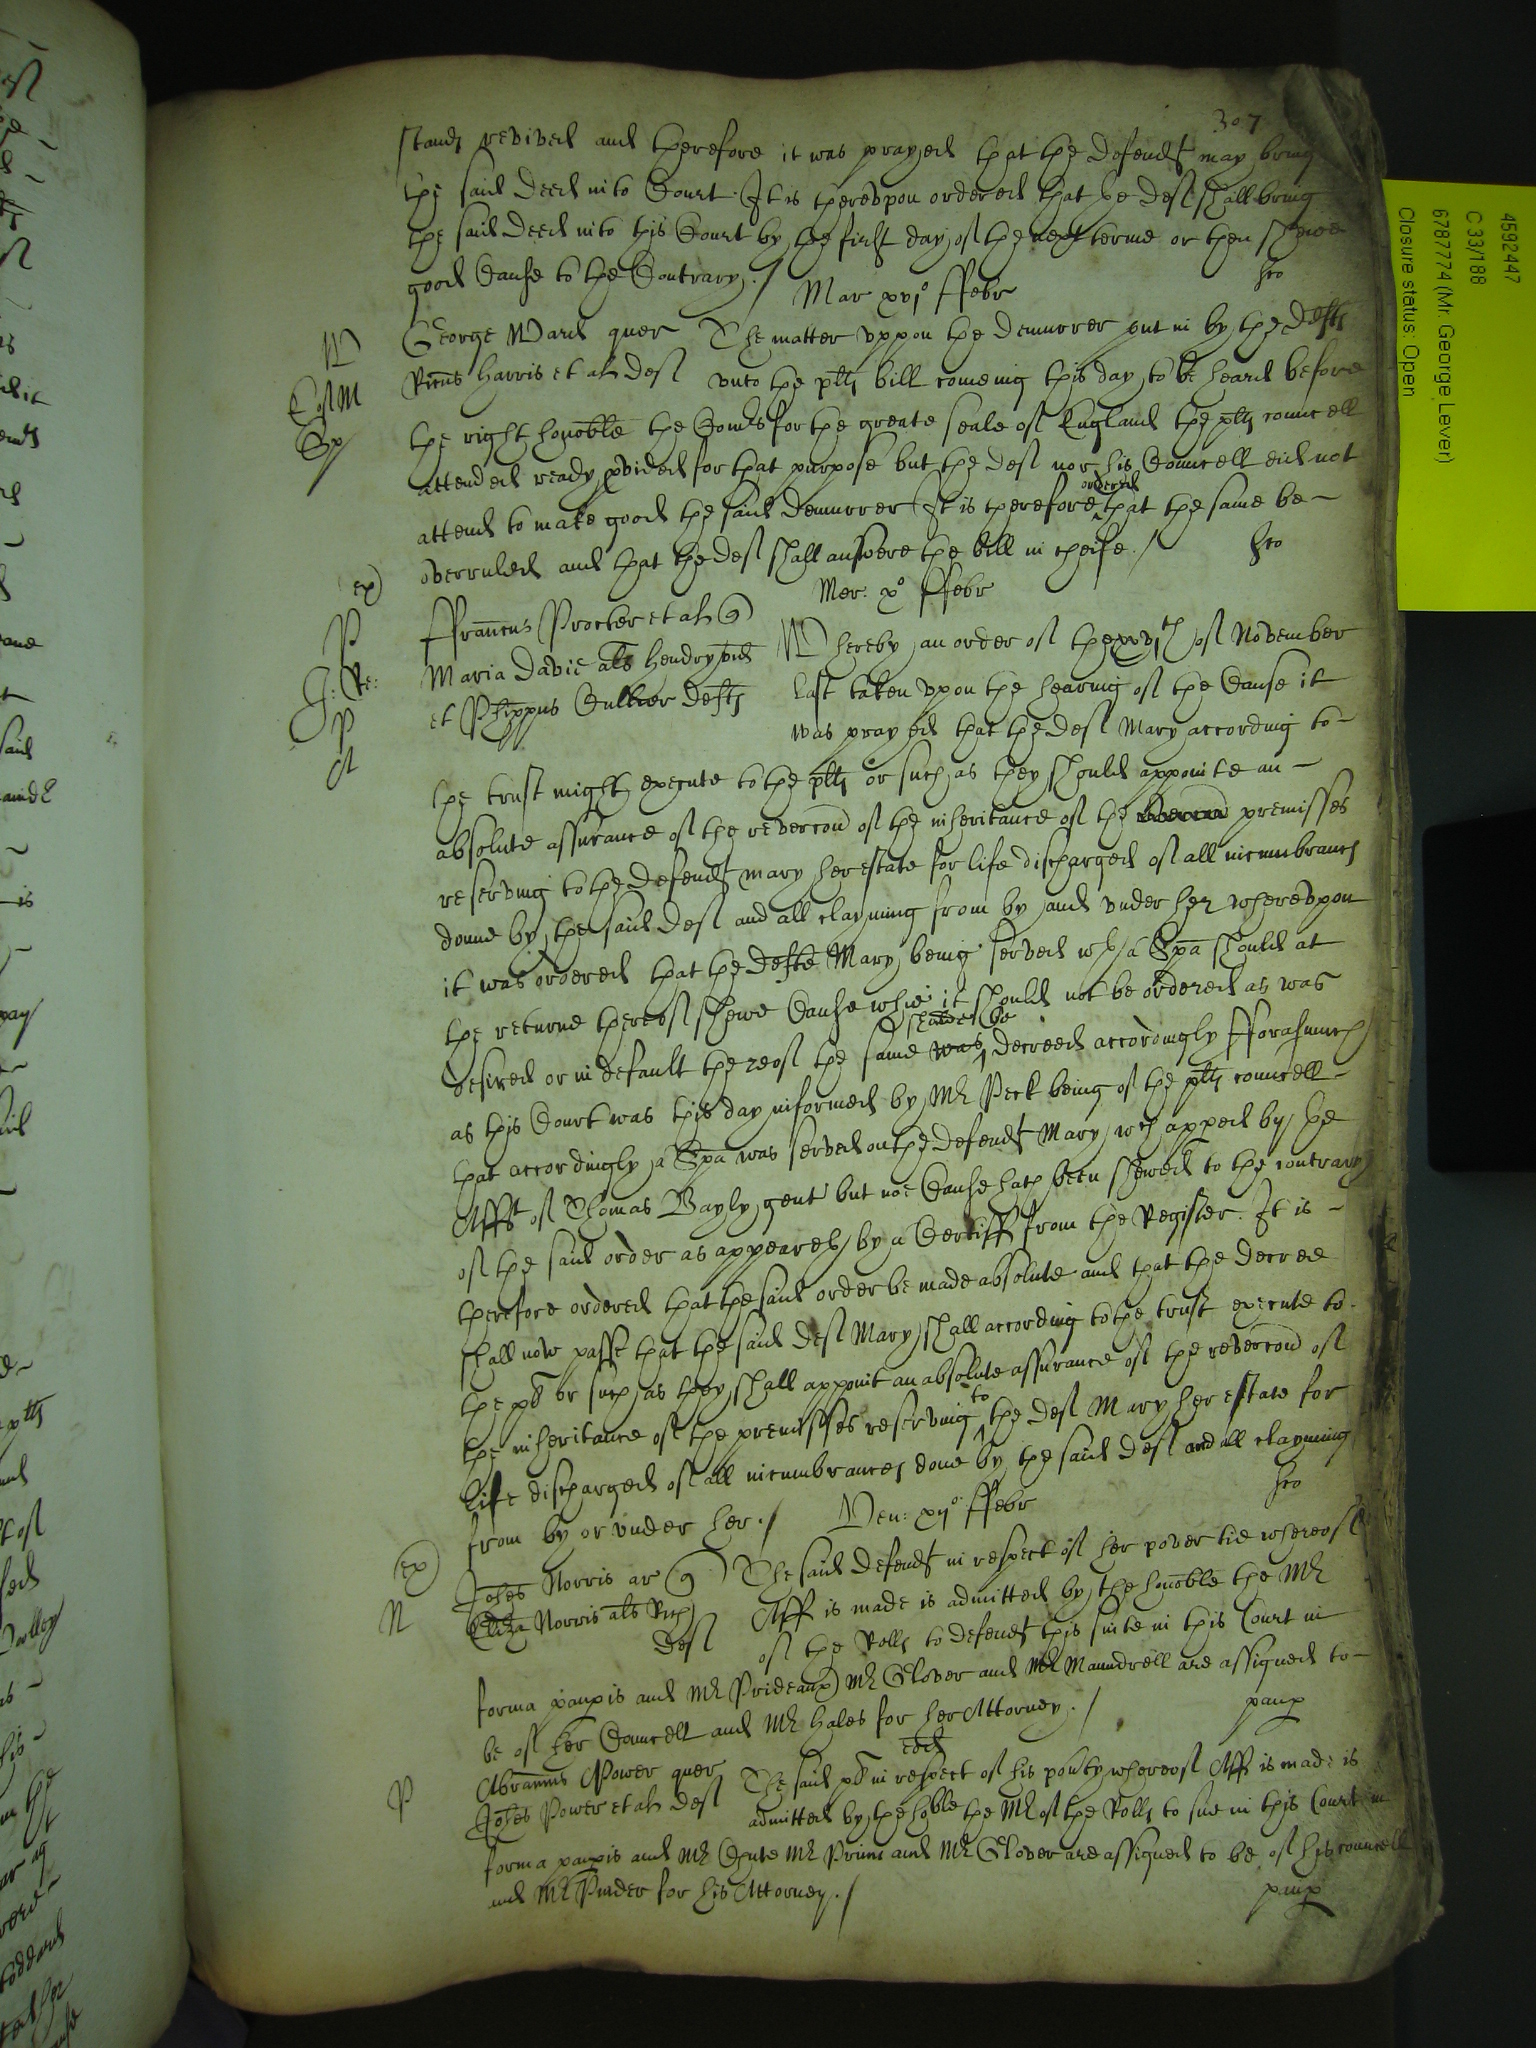 307
stands revived and therefore it was prayed that the defendt may bring
the said deed into Court. It is therevpon ordered that the deft shall bring
the said deed into this Court by the first day of the next terme or then shewe
good Cause to the Contrary./
Mar xvj° ffebr
George Ward quer The matter vppon the demurrer put in by the defts
Ricus Harris et al deft vnto the plts bill comeing this day to be heard before
the right honoble the Comrs for the greate seale of England the plts councell
attended ready pvided for that purpose but the deft nor his Councell did not
attend to make good the said demurrer It is therefore ordered that the same be
overruled and that the deft shall answere the bill in cheife./
Mer: x° ffebr
ex
ffrancus Procter et al
Whereby an order of the xxvjth of November
Maria Davie als Hendry vid
last taken vpon the hearing of the Cause it
et Phippus Cullier defts
was prayed that the deft Mary according to
the trust might execute to the plts or such as they should appointe an
absolute assurance of the revercon of the inheritance of the premisses
reserving to the defendt Mary her estate for life discharged of all incumbrances
donne by the said deft and all clayming from by and vnder her wherevpon
it was ordered that the defte Mary being served wth a Spa should at
the returne thereof shewe Cause whie it should not be ordered as was
desired or in default thereof the same was should be decreed accordingly fforasmuch
as this Court was this day informed by Mr Peck being of the plts councell
that accordingly a Spa was served on the defendt Mary wch appeed by the
Afft of Thomas Bayly gent but noe Cause hath been shewed to the contrary
of the said order as appeareth by a Certiff from the Register. It is
therefore ordered that the said order be made absolute and that the decree
shall now passe that the said deft Mary shall according to the trust execute to
the plt or such as they shall appoint an absolute assurance of the revercon of
the inheritance of the premisses reserving to the deft Mary her estate for
life discharged of all incumbrances done by the said deft and all clayming
from by or vnder her./
Ven: xij° ffebr
ex
N
Johes Norris ar The said defendt in respect of her povertie whereof
Eliza Norris als Rich deft Aff is made is admitted by the honoble the Mr
of the Rolls to defend this suite in this Court in
forma paupis and Mr Prideaux Mr Glover and Mr Maundrell are assigned to
be of her Councell and Mr Hales for her Attorney./
paup
P
Abramus Power quer The said plt in respect of his povty whereof Aff is made is
Johes Power et al deft admitted by the hoble the Mr of the Rolls to sue in this Court in
forma paupis and Mr Chute Mr Prinn and Mr Glover are assigned to be of his councell
and Mr Pinder for his Attorney./
paup
4592447
C 33/188
6787774 (Mr. George Lever)
Closure status: Open